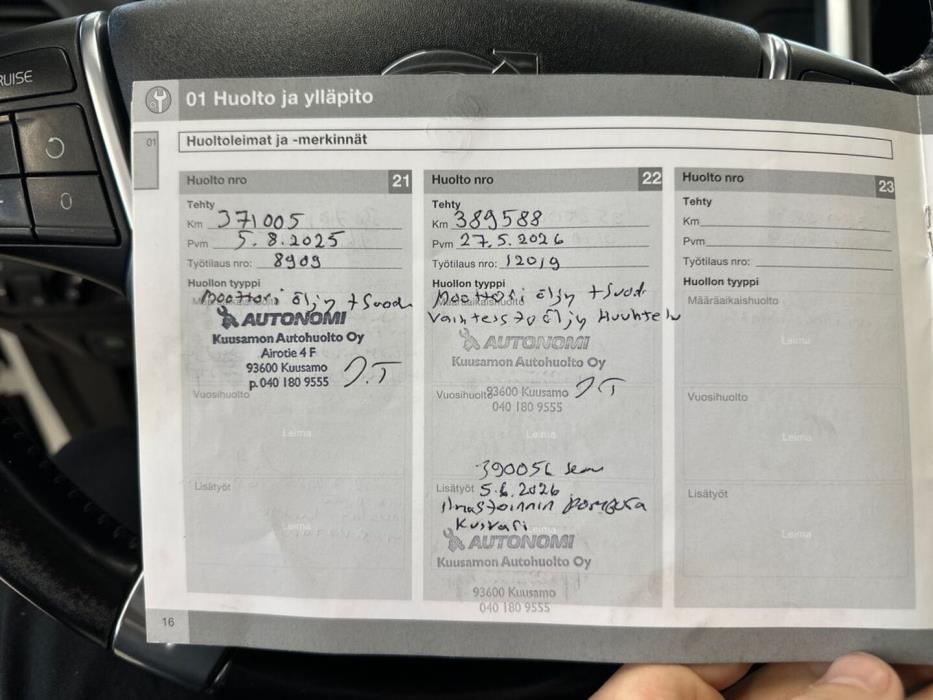 RUISE
0
01 Huolto ja ylläpito
01
Huoltoleimat ja -merkinnät
Huolto nro 21
Tehty
Km 371005
Pvm 5.8.2025
Työtilaus nro: 8909
Huollon tyyppi
Moottori öljy + Suod.
AUTONOMI
Kuusamon Autohuolto Oy
Airotie 4 F
93600 Kuusamo
p.040 180 9555
J.T
Vuosihuolto
Leima
Lisätyöt
Leima
Huolto nro 22
Tehty
Km 389588
Pvm 27.5.2026
Työtilaus nro: 12019
Huollon tyyppi
Määräaikaishuolto
Moottori öljy + Suod.
Vaihteisto öljy Huuhtelu
AUTONOMI
Kuusamon Autohuolto Oy
Vuosihuolto 93600 Kuusamo J.T
040 180 9555
Leima
390056
Lisätyöt 5.6.2026
Ilmastoinnin
Kuivari
Leima
AUTONOMI
Kuusamon Autohuolto Oy
93600 Kuusamo
040 180 9555
Huolto nro 23
Tehty
Km
Pvm
Työtilaus nro:
Huollon tyyppi
Määräaikaishuolto
Leima
Vuosihuolto
Leima
Lisätyöt
Leima
16